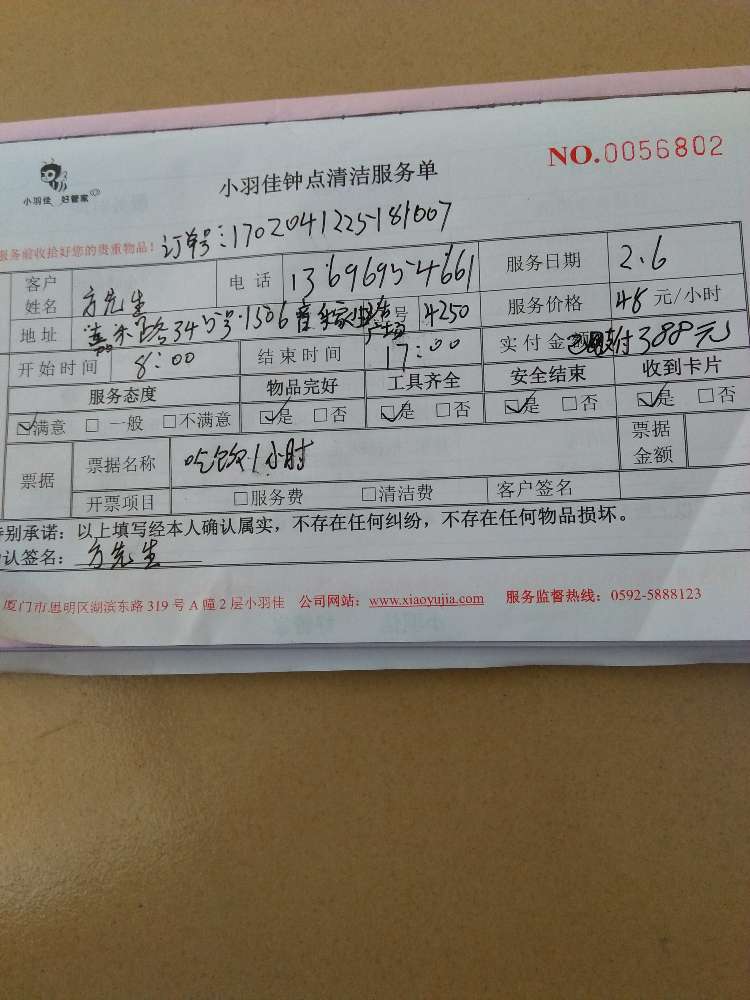 NO.0056802
小羽佳 好管家
小羽佳钟点清洁服务单
服务前收拾好您的贵重物品！ 订单号：1702041225181007
客户姓名 方先生 电话 13696954661 服务日期 2.6
地址 路345号1506 号 4250 服务价格 48 元/小时
开始时间 8：00 结束时间 17：00 实付金额 支付388元
服务态度 物品完好 工具齐全 安全结束 收到卡片
☑满意 □一般 □不满意 ☑是 □否 ☑是 □否 ☑是 □否 ☑是 □否
票据 票据名称 吃饭1小时 票据金额
开票项目 □服务费 □清洁费 客户签名
特别承诺：以上填写经本人确认属实，不存在任何纠纷，不存在任何物品损坏。
认签名：方先生
厦门市思明区湖滨东路319号A幢2层小羽佳 公司网站：www.xiaoyujia.com 服务监督热线：0592-5888123